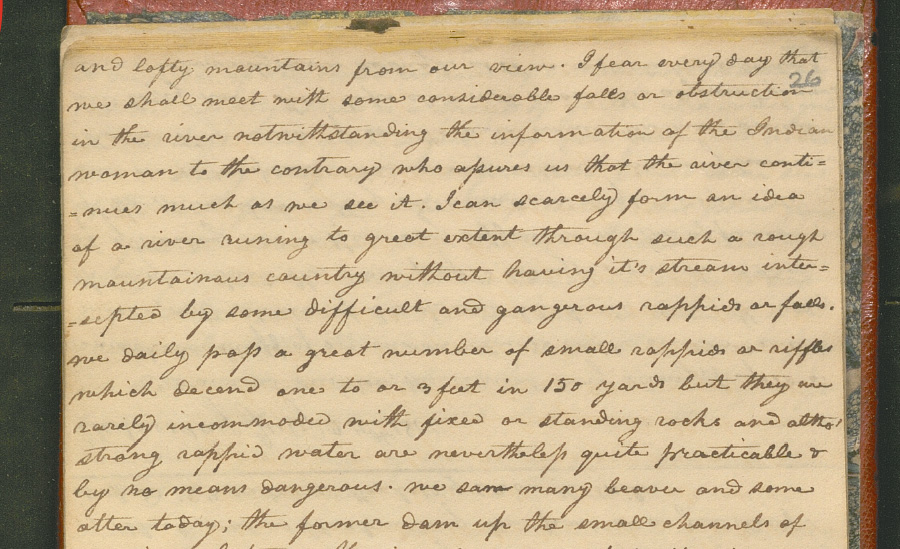 and lofty mountains from our view. I fear every day that
26
we shall meet with some considerable falls or obstruction
in the river notwithstanding the information of the Indian
woman to the contrary who assures us that the river conti=
=nues much as we see it. I can scarcely form an idea
of a river runing to great extent through such a rough
mountainous country without having it's stream inter=
=septed by some difficult and gangerous rappids or falls.
we daily pass a great number of small rappids or riffles
which decend one to or 3 feet in 150 yards but they are
rarely incommoded with fixed or standing rocks and altho'
strong rappid water are nevertheless quite practicable &
by no means dangerous. we saw many beaver and some
otter today; the former dam up the small channels of